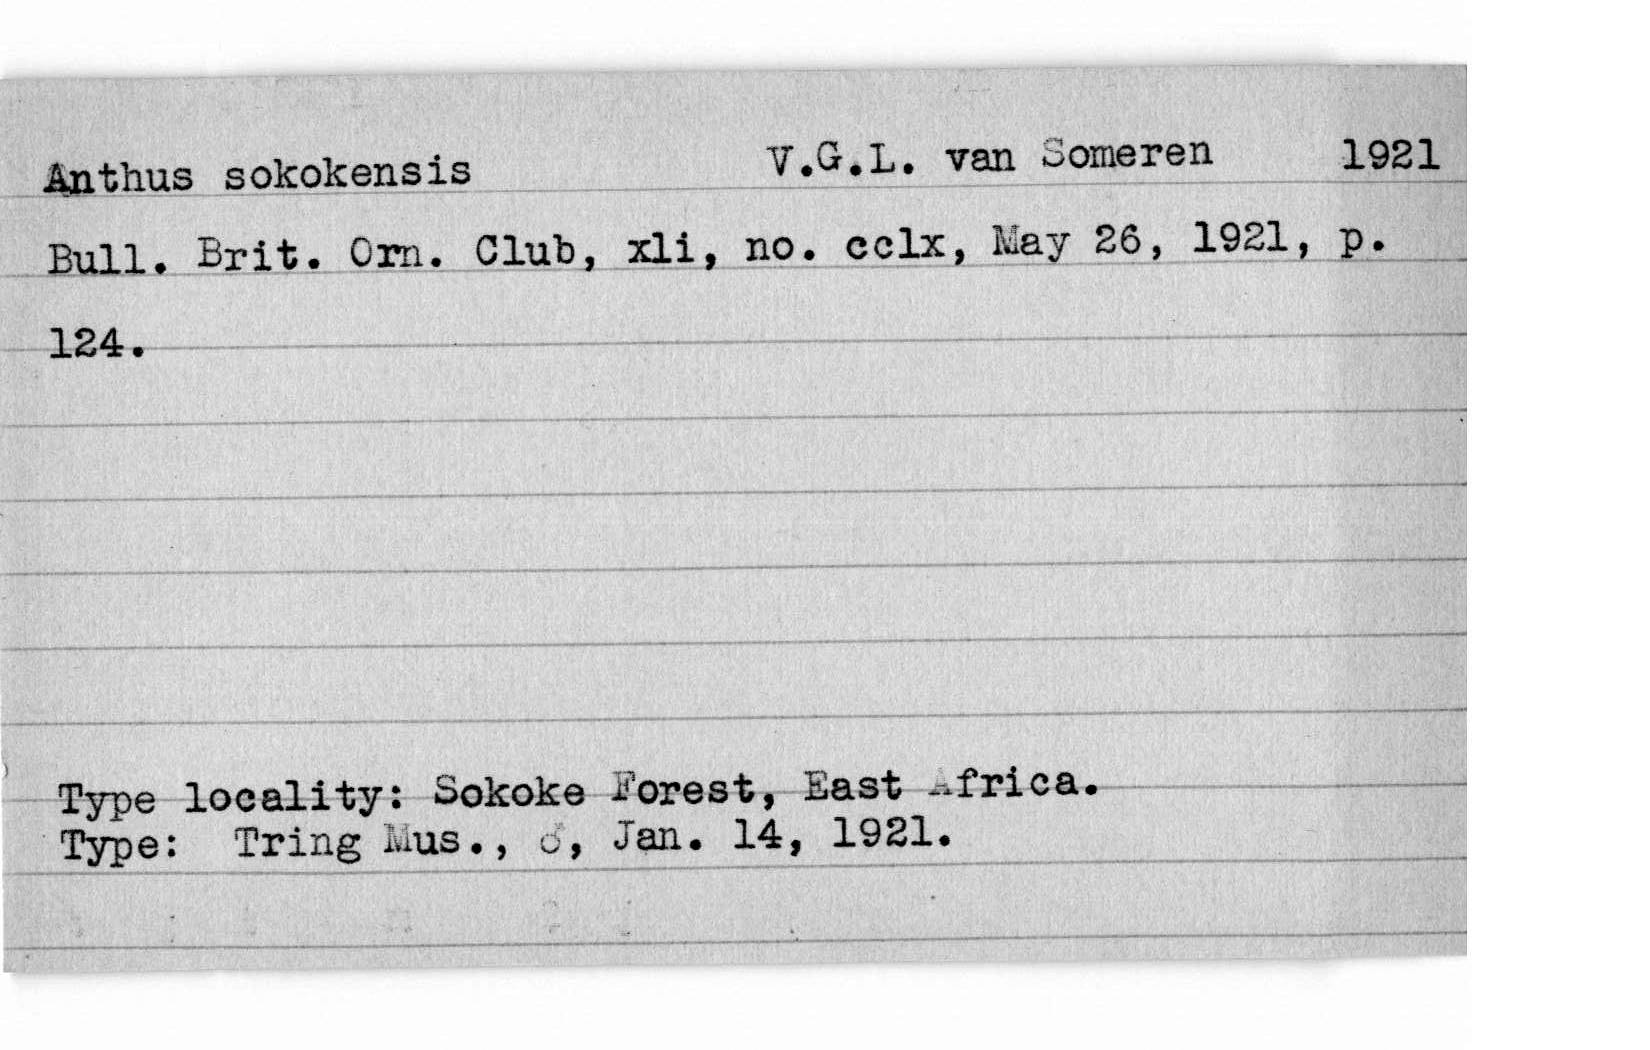 Anthus sokokensis V.G.L. van Someren 1921
Bull. Brit. Orn. Club, xli, no. cclx, May 26, 1921, p.
124.
Type locality: Sokoke Forest, East Africa.
Type: Tring Mus., ♂, Jan. 14, 1921.